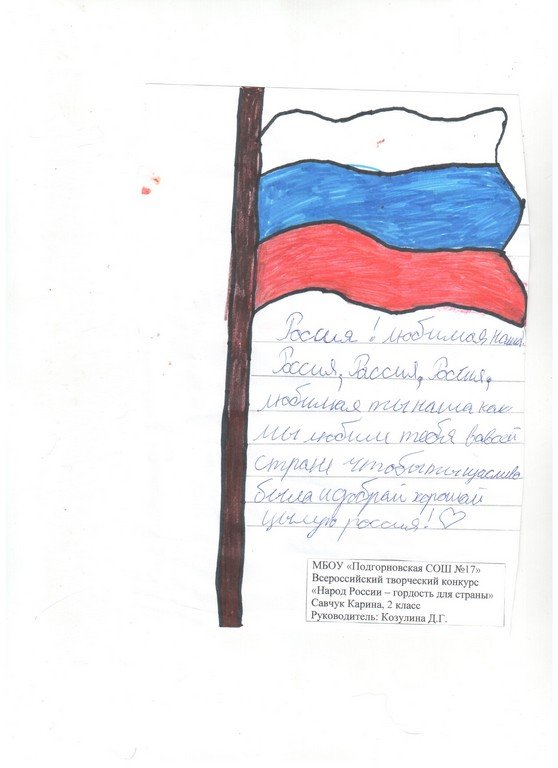 Россия! любимая, наша
Россия, Рассия, Россия,
любимая ты наша как
мы любим тебя вавай
стране чтобы ты щаслива
была и добрай хорошай
цылую россия!
МБОУ «Подгорновская СОШ №17»
Всероссийский творческий конкурс
«Народ России – гордость для страны»
Савчук Карина, 2 класс
Руководитель: Козулина Д.Г.